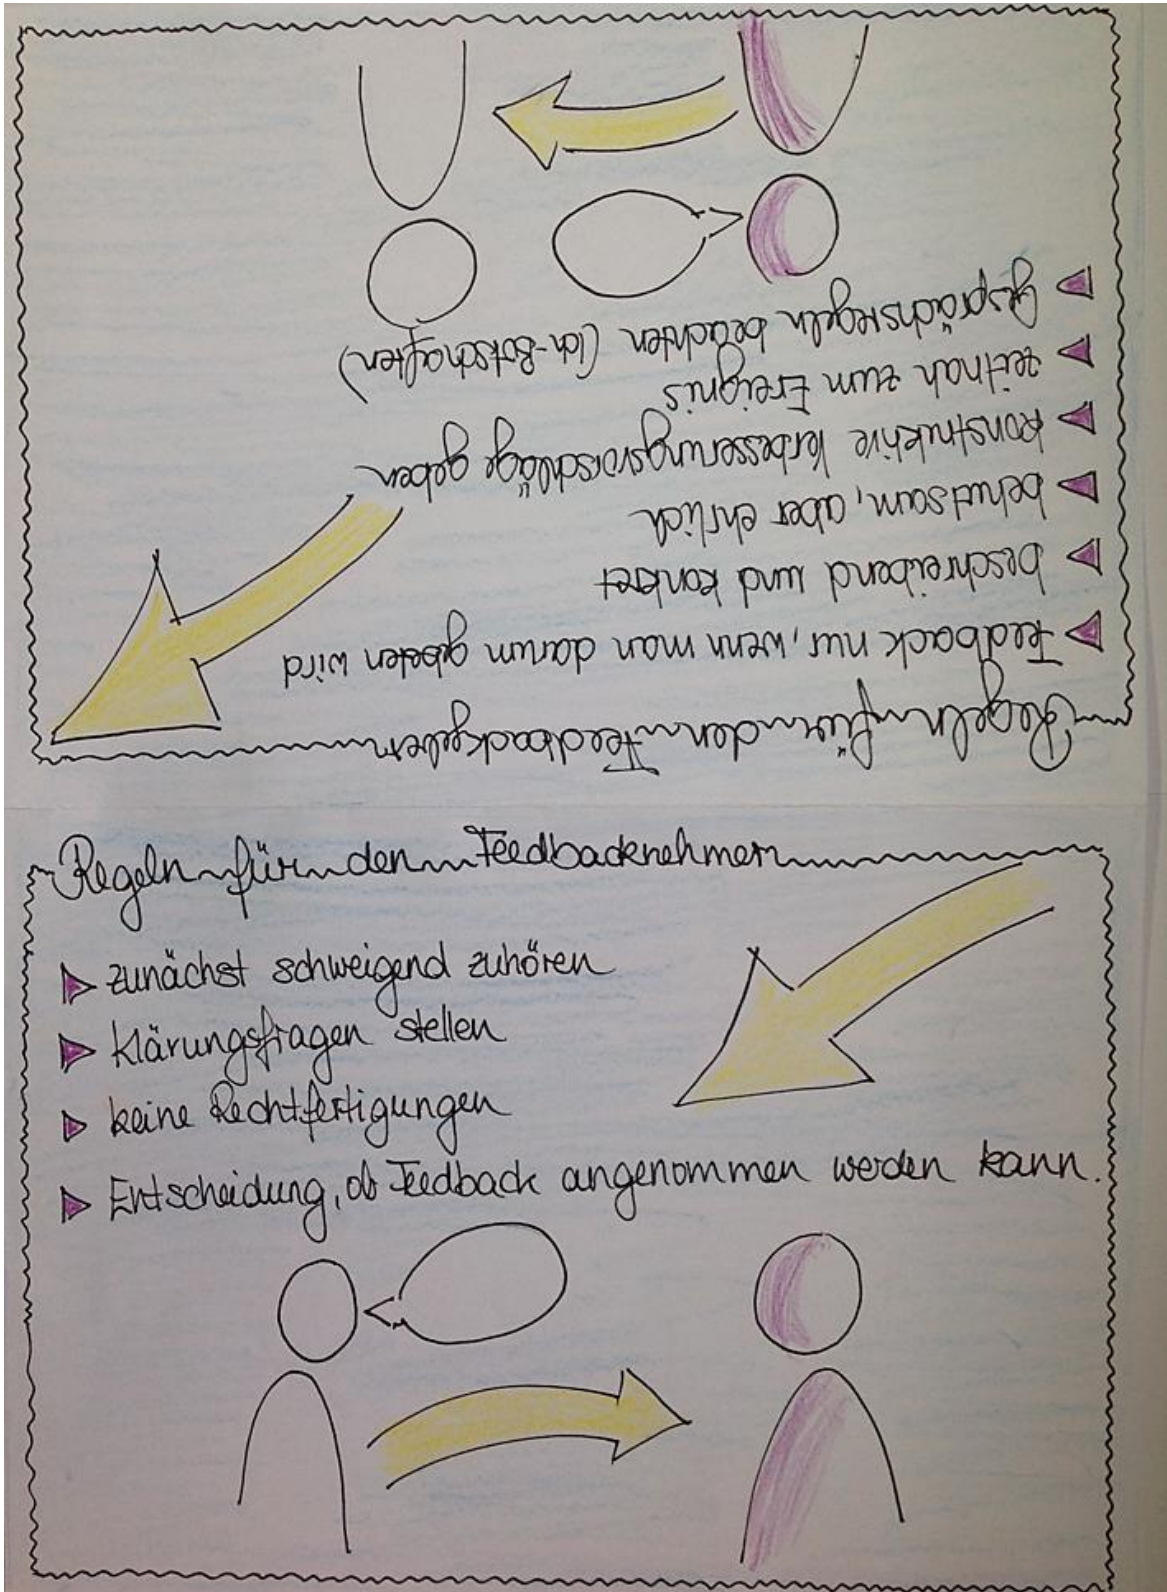 Regeln für den Feedbackgeber
Feedback nur, wenn man darum gebeten wird
beschreibend und konkret
behutsam, aber ehrlich
konstruktive Verbesserungsvorschläge geben
zeitnah zum Ereignis
Gesprächsregeln beachten (Ich-Botschaften)
Regeln für den Feedbacknehmer
zunächst schweigend zuhören
Klärungsfragen stellen
keine Rechtfertigungen
Entscheidung, ob Feedback angenommen werden kann.